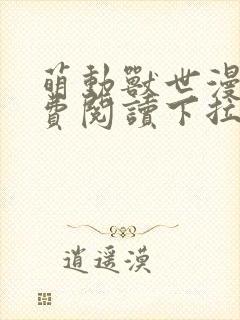 萌動獸世漫
費閱讀下拉
逍遥漠